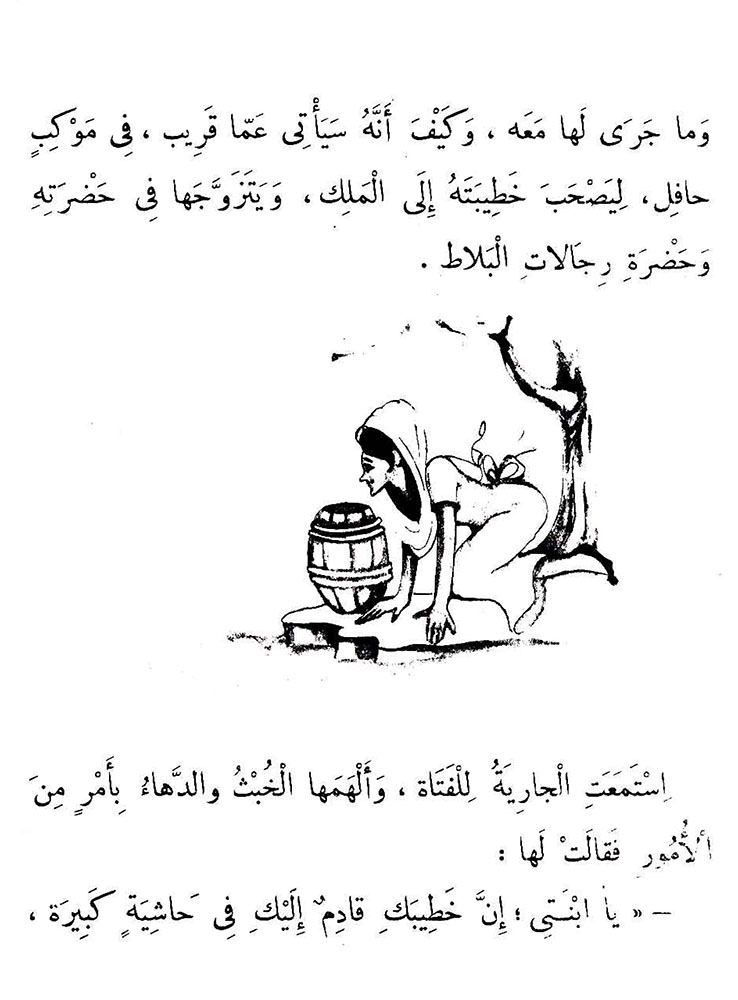 وَما جَرَى لَها مَعَه ، وَكَيْفَ أَنَّهُ سَيَأْتِى عَمّا قَرِيب ، فِى مَوْكِبٍ
حافِل، لِيَصْحَبَ خَطِيبَتَهُ إِلَى الْمَلِك ، وَيَتَزَوَّجَها فِى حَضْرَتِهِ
وَحَضْرَةِ رِجالاتِ الْبَلاط .
اِسْتَمَعَتِ الْجارِيَةُ لِلْفَتَاة ، وَأَلْهَمَها الْخُبْثُ والدَّهاءُ بِأَمْرٍ مِنَ
الْأُمُورِ فَقالَتْ لَها :
– « يا ابْنَتِى ؛ إِنَّ خَطِيبَكِ قادِمٌ إِلَيْكِ فِى حَاشِيَةٍ كَبِيرَة ،